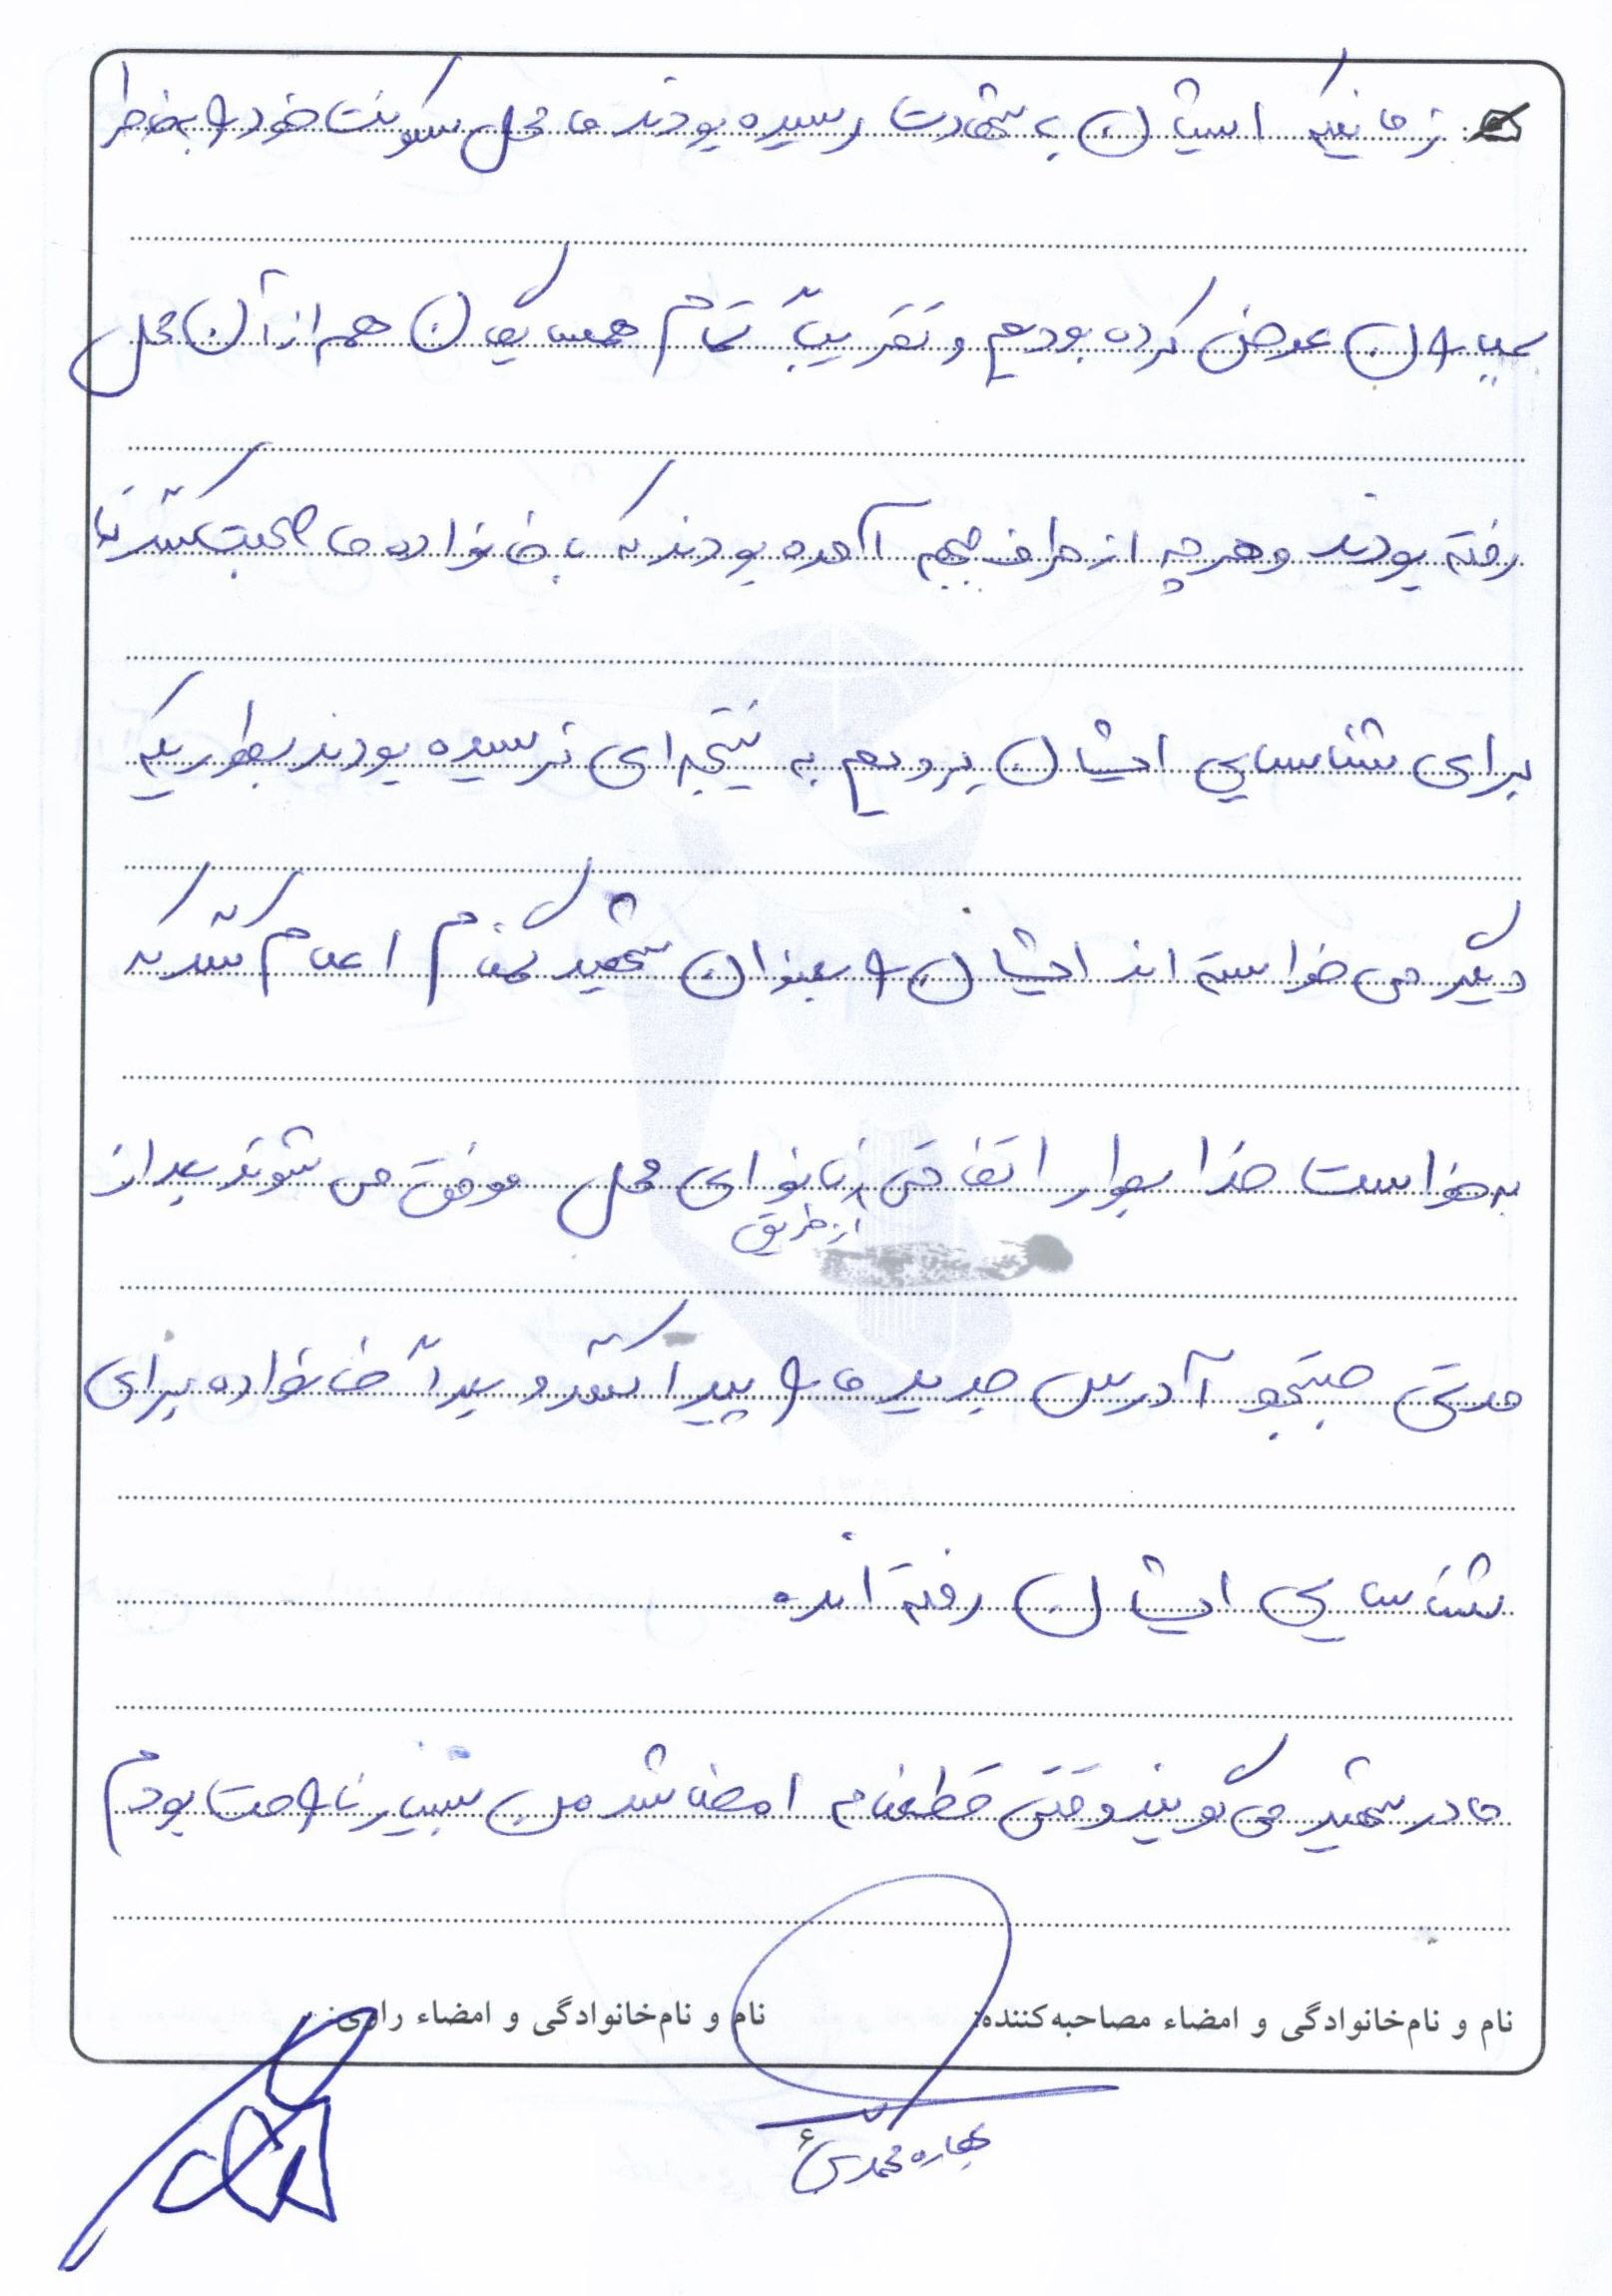 زمانیکه ایشان به شهادت رسیده بودند ما محل سکونت خود را بخاطر
بمباران عوض کرده بودیم و تقریباً تمام همسایگان هم از آن محل
رفته بودند و هر چه از طرف جبهه آمده بودند که با خانواده ما صحبت کنند تا
برای شناسایی ایشان برویم به نتیجه ای نرسیده بودند بطوریکه
دیگر می خواسته اند ایشان را بعنوان شهید گمنام اعلام کنند که
به خواست خدا بطور اتفاقی از طریق نانوای محل موفق می شوند بعد از
مدتی جستجو آدرس جدید ما را پیدا کنند و بعداً خانواده برای
شناسایی ایشان رفته اند.
مادر شهید می گویند وقتی قطعنامه امضا شد من بسیار ناراحت بودم
نام و نام‌خانوادگی و امضاء مصاحبه‌کننده: نام و نام‌خانوادگی و امضاء راوی:
بهاره محمدی